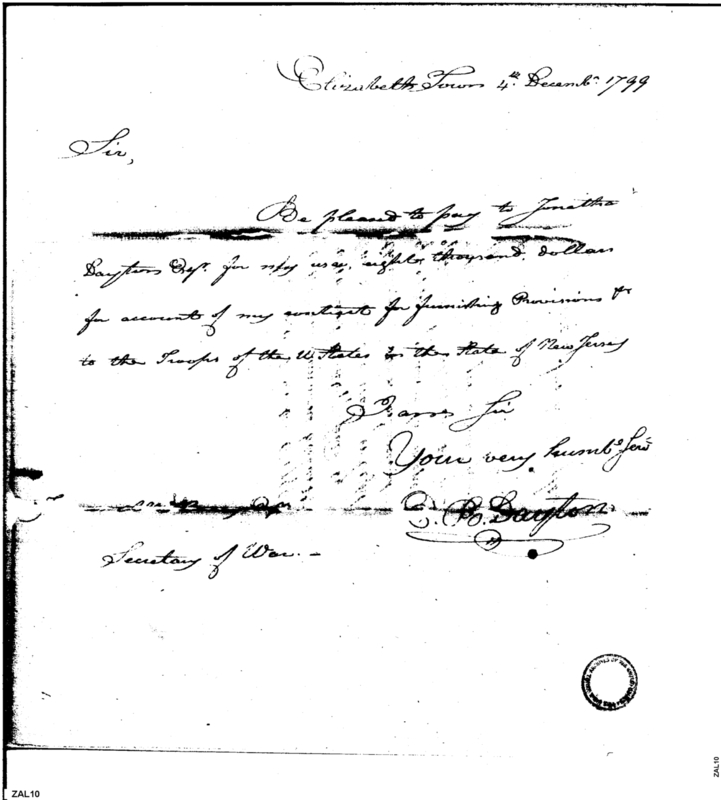 Elizabeth Town 4th. Decembr. 1799
Sir,
Be pleased to pay to Jonathn
Dayton Esqr. for my use, eight thousand dollars
for account of my contract for furnishing Provisions &c
to the Troops of the U. States in the State of New Jersey
I am Sir
Your very humbe. Servt
Esqr.
Dayton
Secretary of War. -
ZAL10
ZAL10